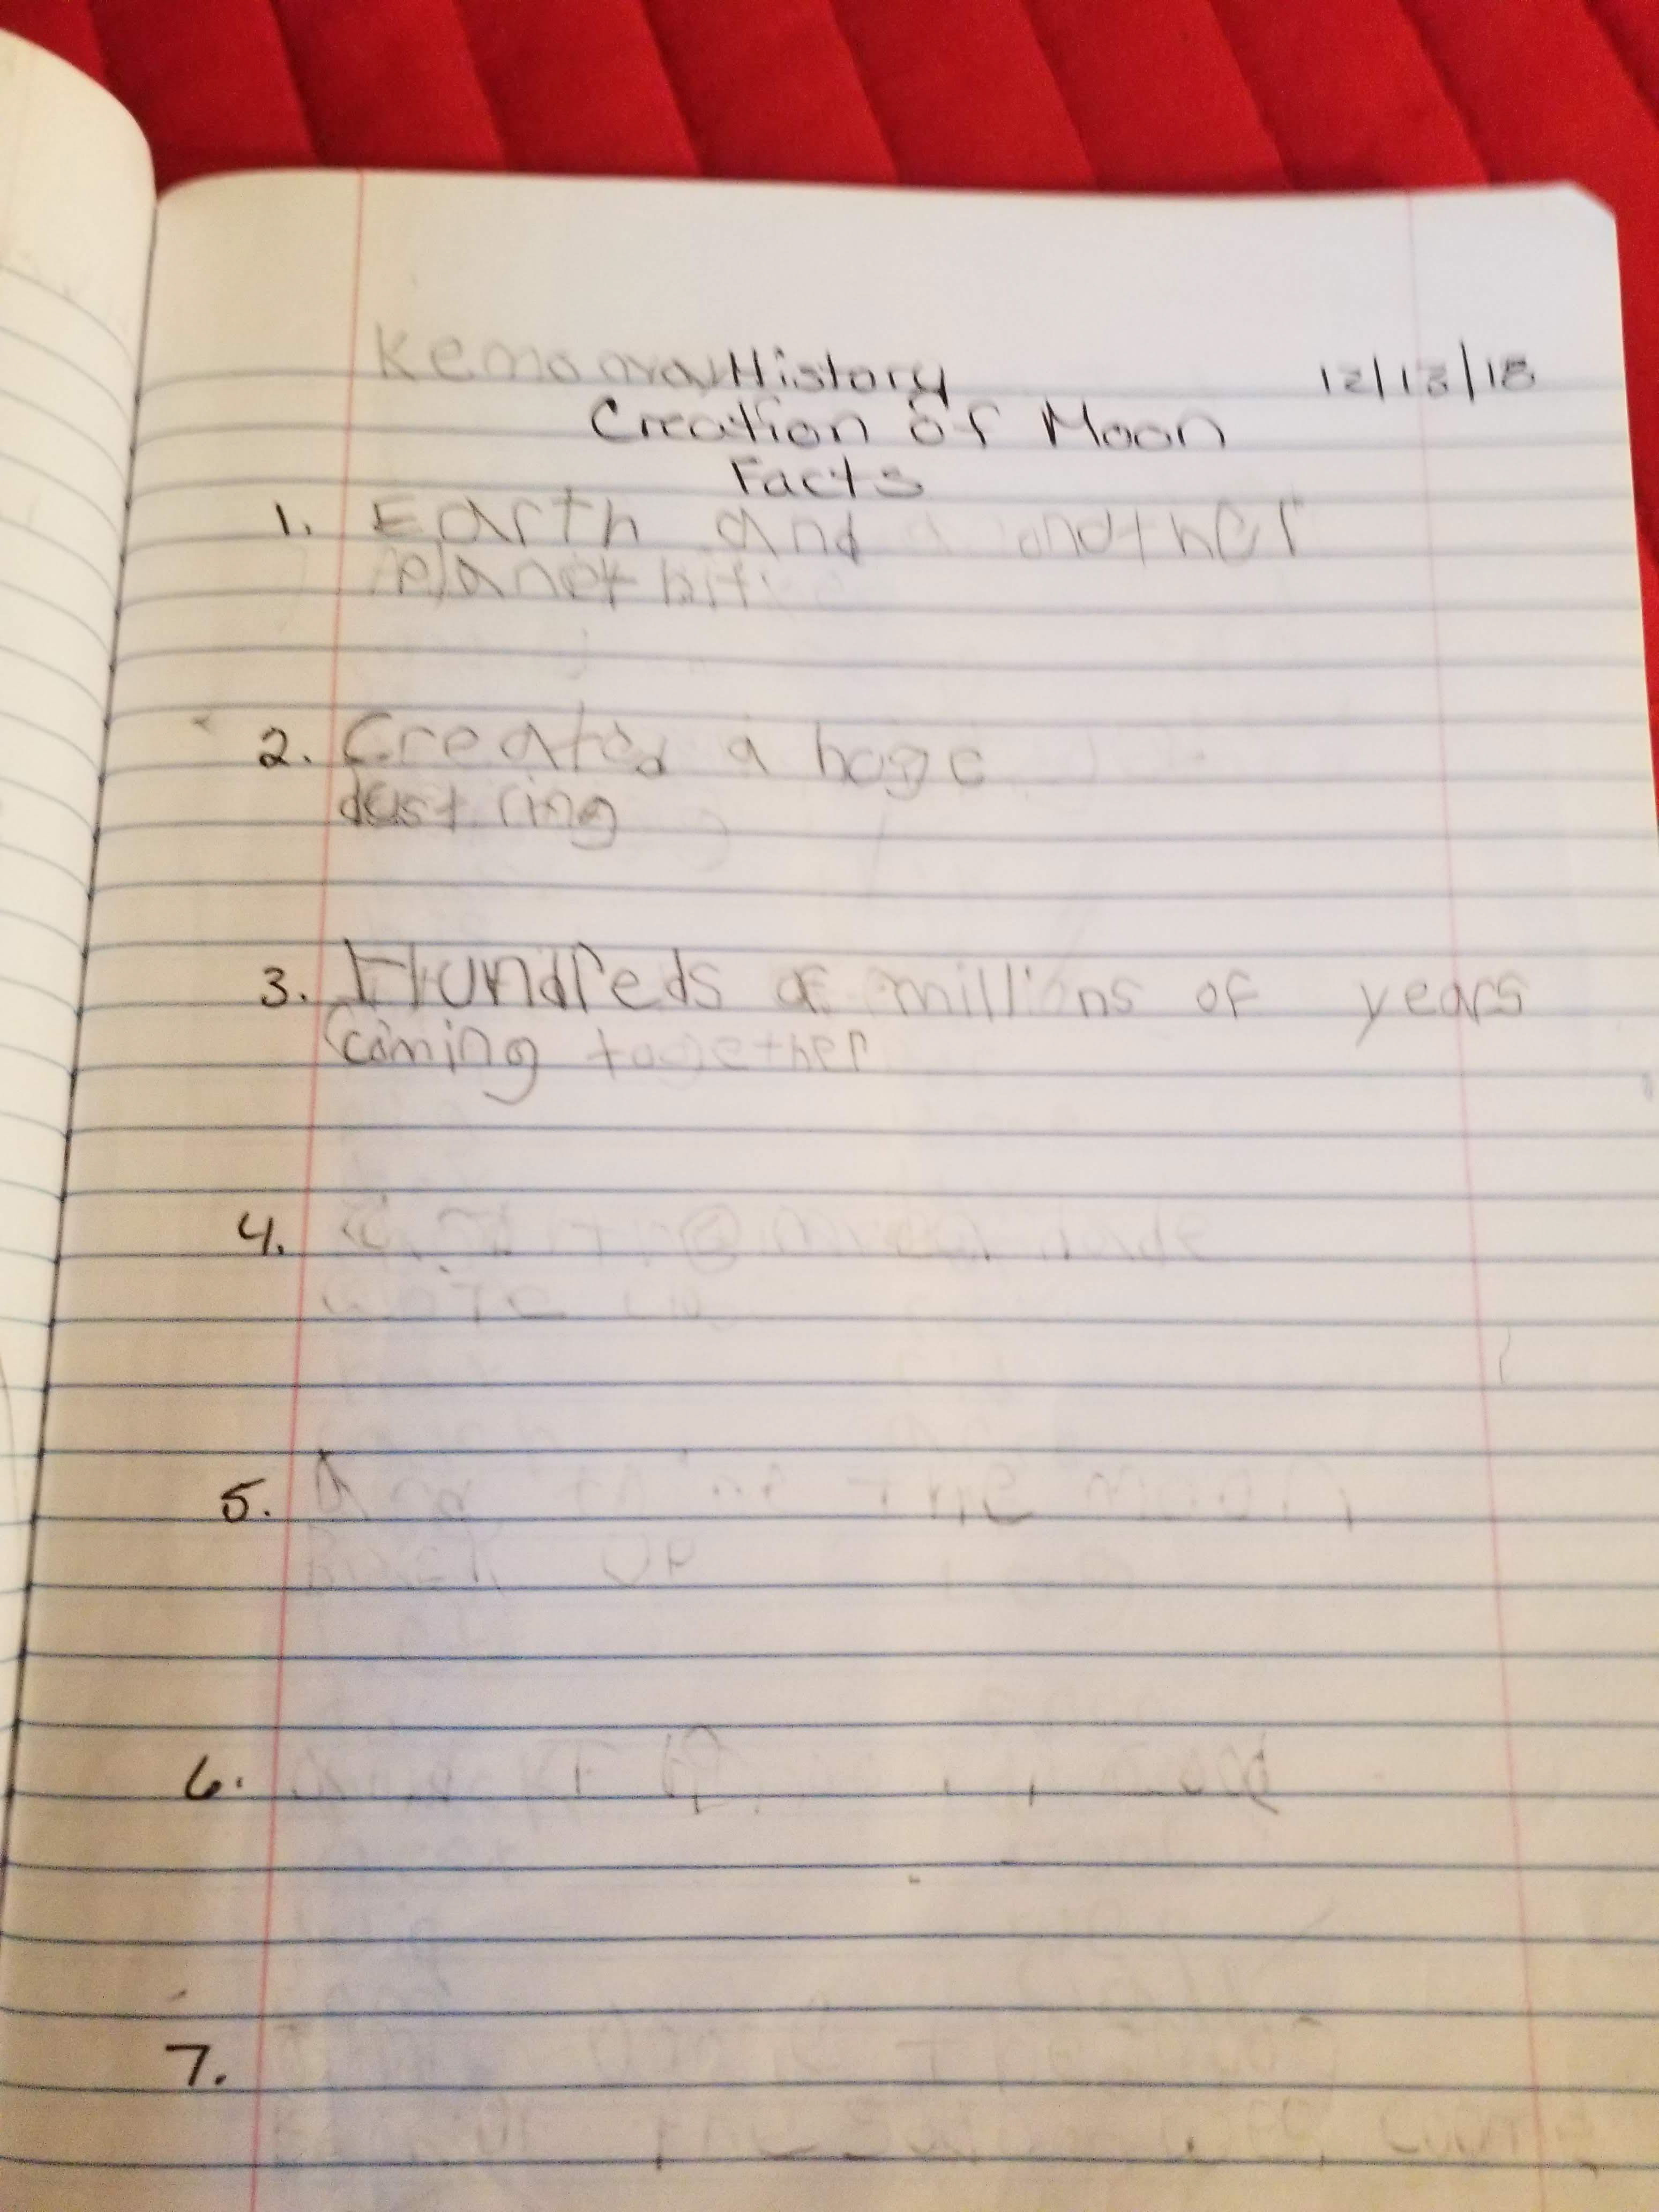 History 12/13/18
Creation of Moon
Facts
1. Earth and another
planet hit
2. Created a hage
dust ring
3. Hundreds of millions of years
coming together
4.
5.
6.
7.